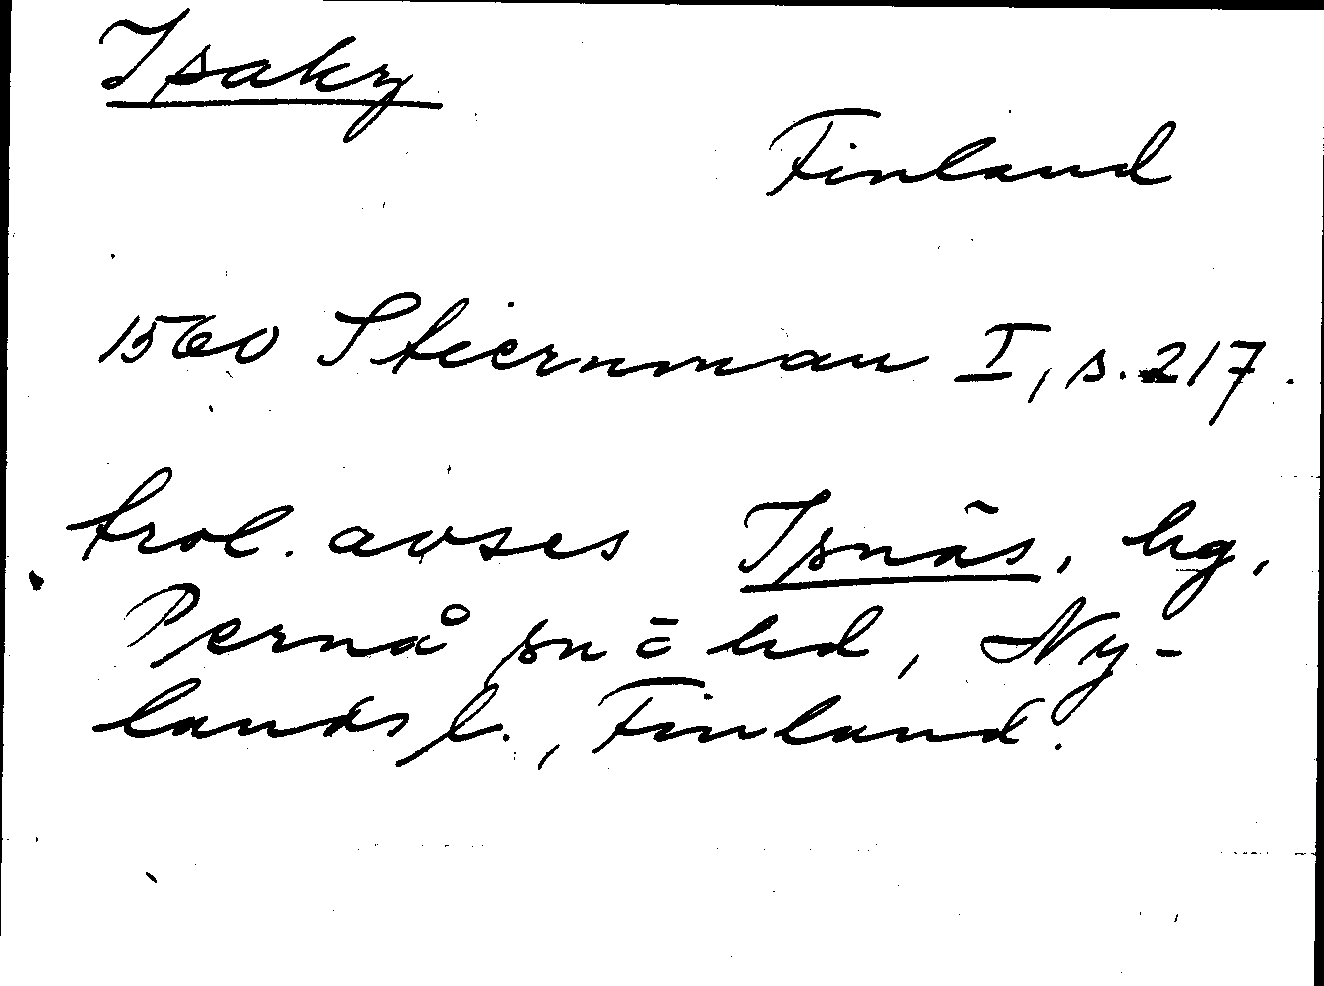 Isaky
Finland
1560 Stiernman I, s. 217.
trol. avses Isnäs, hg,
Pernå sn o hd, Ny-
lands l., Finland.